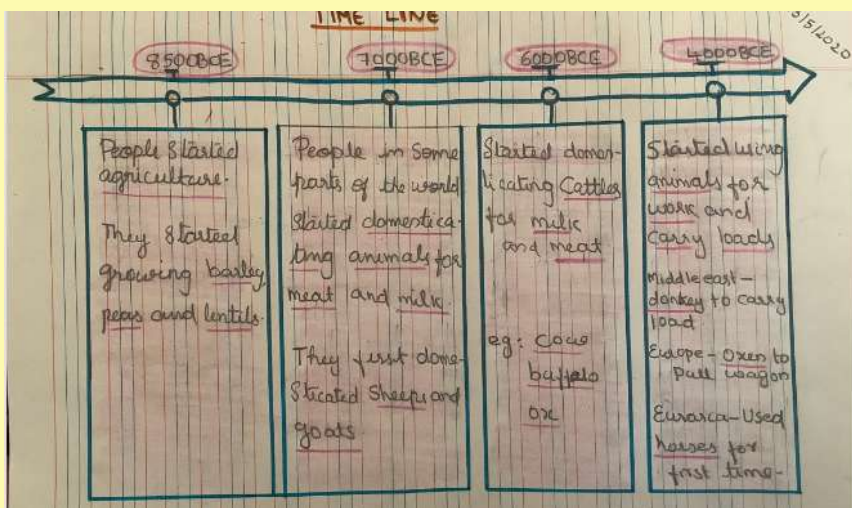 TIME LINE
5/5/2020
8500BCE
7000BCE
6000BCE
4000BCE
People Started
agriculture.
They Started
growing barley,
peas and lentils.
People in Some
parts of the world
Started domestica-
ting animals for
meat and milk.
They first dome-
Sticated Sheeps and
goats
Started domes-
ticating Cattles
for milk
and meat
eg: Cow
buffalo
ox
Started using
animals for
work and
carry loads
Middle east-
donkey to carry
load
Europe- Oxen to
pull wagon
- Used
horses for
first time-